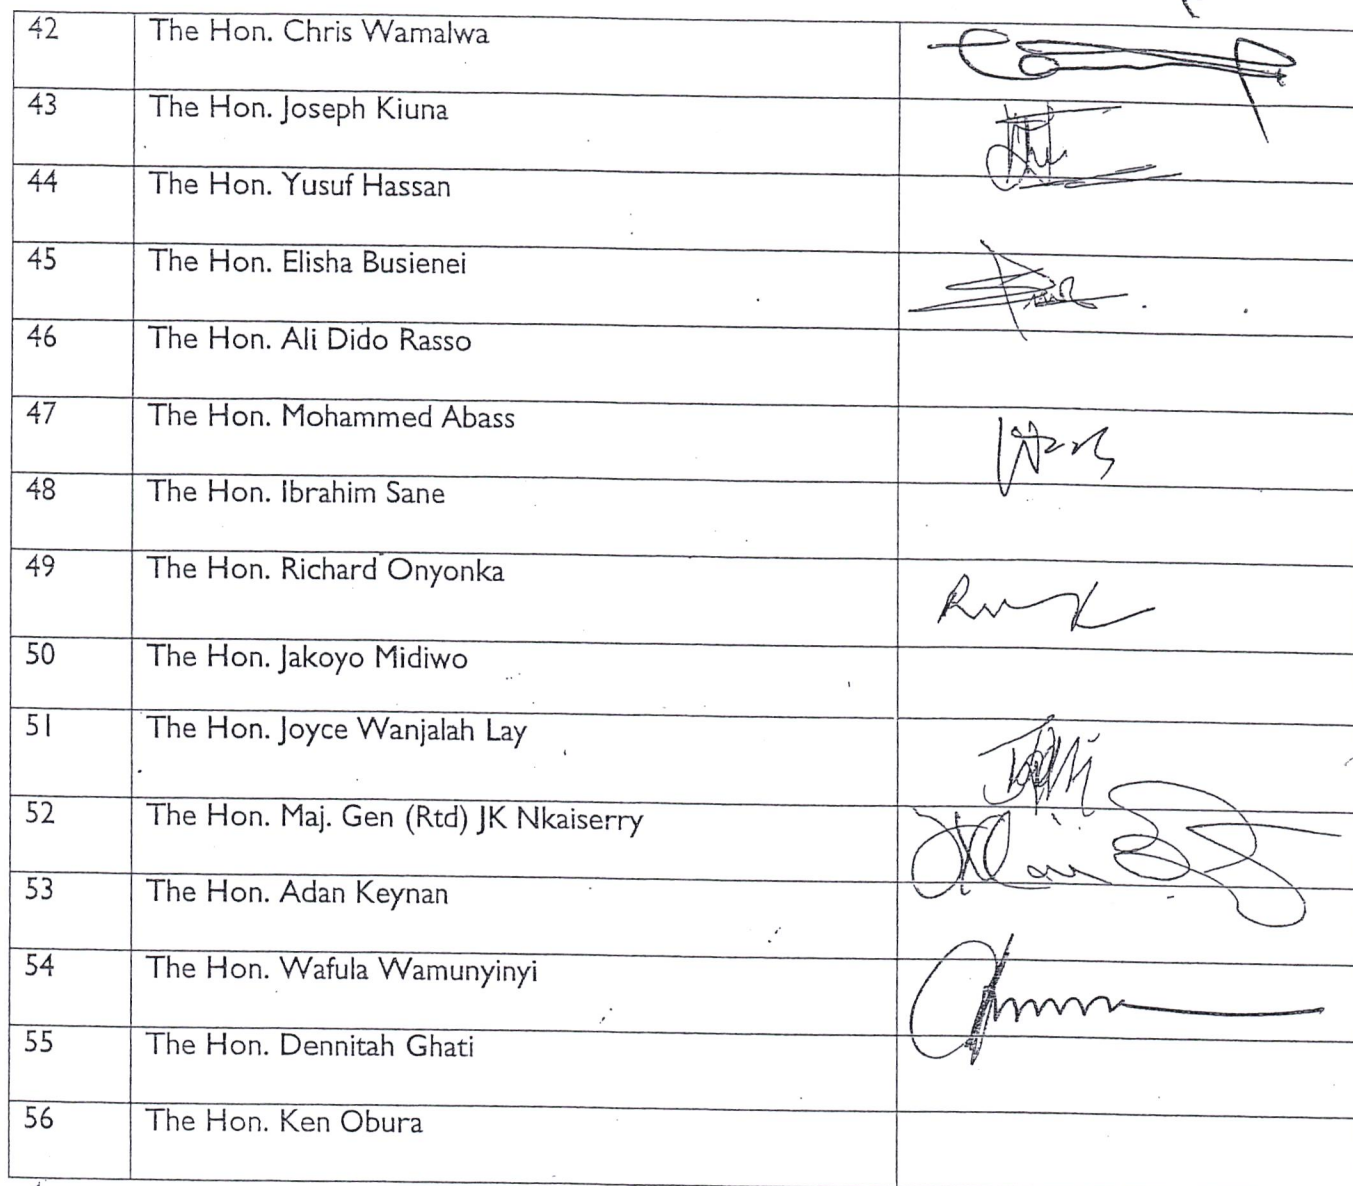 42 The Hon. Chris Wamalwa
43 The Hon. Joseph Kiuna
44 The Hon. Yusuf Hassan
45 The Hon. Elisha Busienei
46 The Hon. Ali Dido Rasso
47 The Hon. Mohammed Abass
48 The Hon. Ibrahim Sane
49 The Hon. Richard Onyonka
50 The Hon. Jakoyo Midiwo
51 The Hon. Joyce Wanjalah Lay
52 The Hon. Maj. Gen (Rtd) JK Nkaiserry
53 The Hon. Adan Keynan
54 The Hon. Wafula Wamunyinyi
55 The Hon. Dennitah Ghati
56 The Hon. Ken Obura